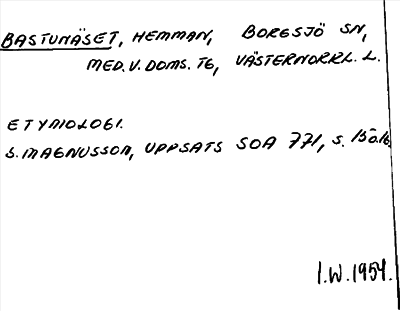 BASTUNÄSET, HEMMAN, BORGSJÖ SN,
MED. V. DOMS. TG, VÄSTERNORRL. L.
ETYMOLOGI.
S. MAGNUSSON, UPPSATS SOA 771, S. 15 o. 16
I.W. 1954.